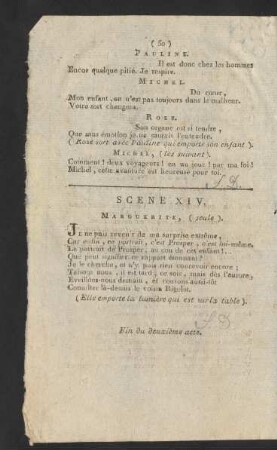 ( 50 )
PAULINE.
Il est donc chez les hommes
Encor quelque pitié. Je respire.
MICHEL.
Du cœur,
Mon enfant, on n'est pas toujours dans le malheur.
Votre sort changera.
ROSE.
Son organe est si tendre,
Que sans émotion je ne saurais l'entendre.
( Rose sort avec Pauline qui emporte son enfant ).
MICHEL, ( les suivant ).
Comment ! deux voyageurs ! en un jour ! par ma foi !
Michel, cette aventure est heureuse pour toi.
SCENE XIV.
MARGUERITE, ( seule ).
JE ne puis revenir de ma surprise extrême,
Car enfin, ce portrait, c'est Prosper, c'est lui-même.
Le portrait de Prosper, au cou de cet enfant !
Que peut signifier ce rapport étonnant ?
Je le cherche, et n'y puis rien concevoir encore ;
Taisons nous, il est tard, ce soir, mais dès l'aurore,
Eveillons-nous demain, et courons aussi-tôt
Consulter là-dessus le voisin
( Elle emporte la lumière qui est sur la table ).
Fin du deuxième acte.